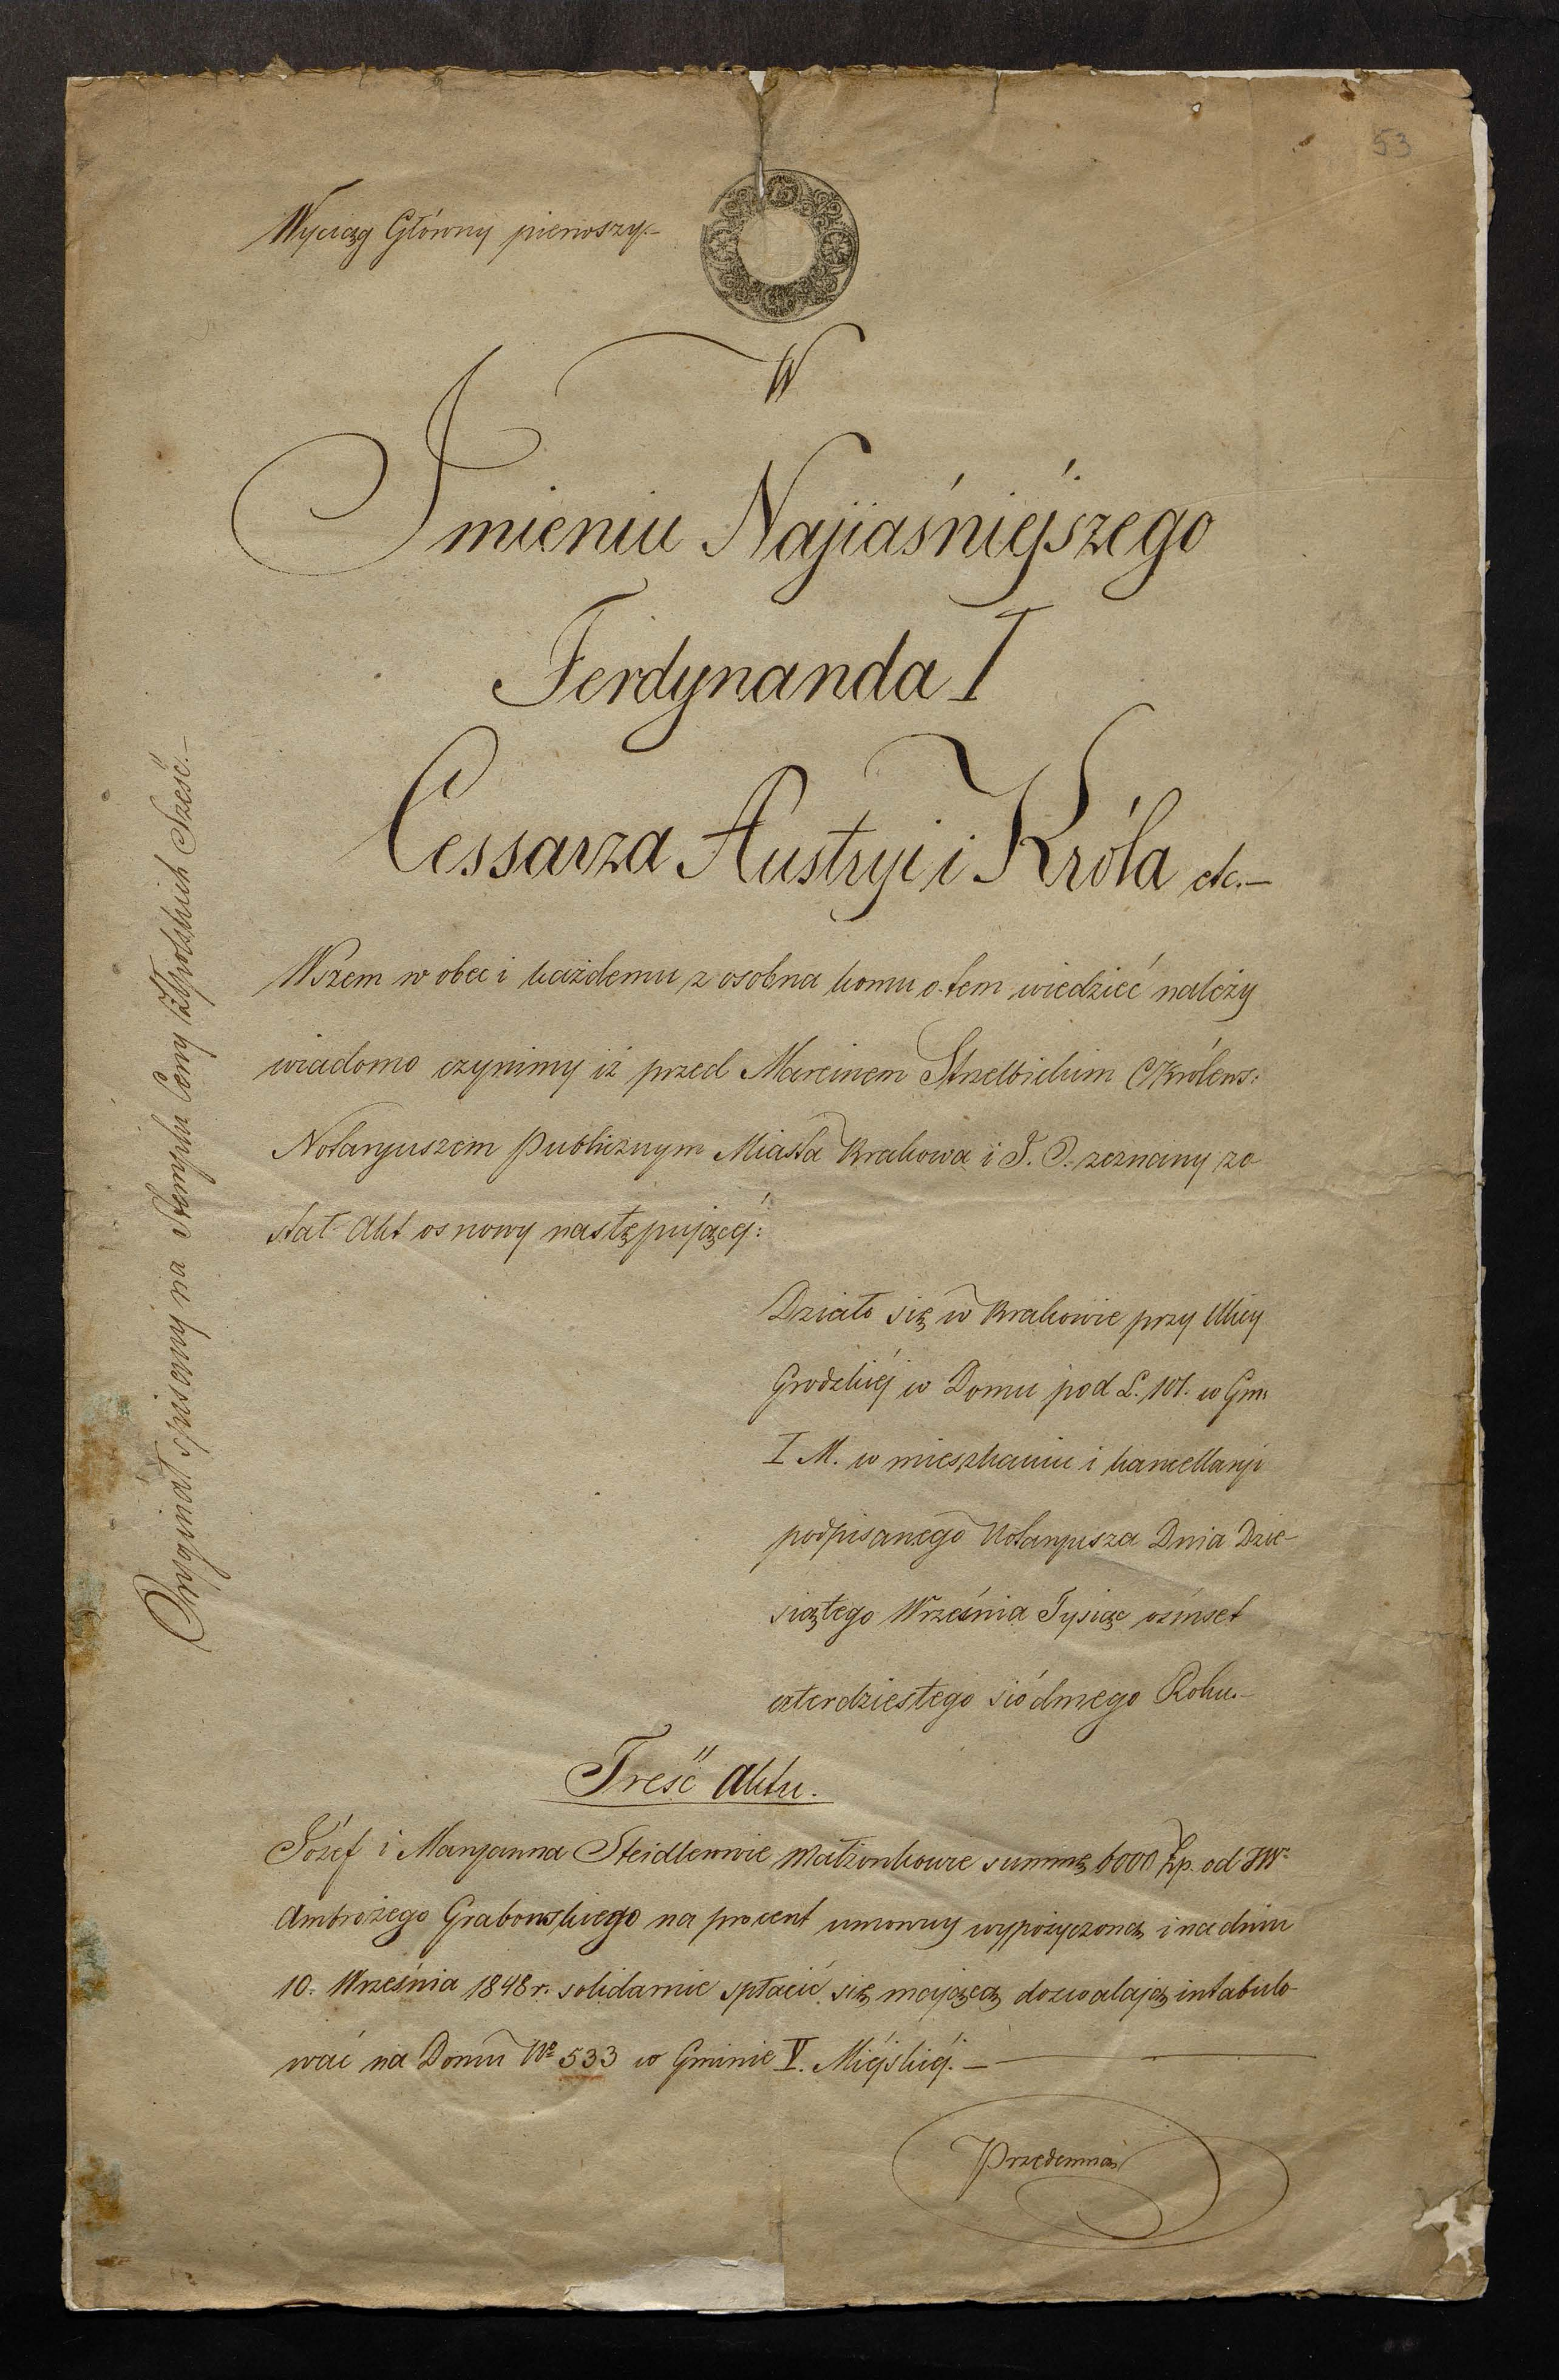 53
Wyciąg Główny pierwszy.–
W
Imieniu Najjaśniejszego
Ferdynanda I
Cessarza Austryi i Króla etc.–
Wszem w obec i każdemu z osobna komu o tem wiedzieć należy
wiadomo czynimy iż przed Marcinem Strzelbickim C Królews:
Notaryuszem Publicznym Miasta Krakowa i J. O. zeznany zo
stał Akt osnowy następującéj:
Działo się w Krakowie przy Ulicy
Grodzkiéj w Domu pod L. 101. w Gm:
I M. w mieszkaniu i kancellaryi
podpisanego Notaryusza Dnia Dzie-
siątego Września Tysiąc ośmset
czterdziestego siódmego Roku.–
Treść Aktu.
Józef i Maryanna Steidlerowie Małżonkowie summę 6000 Zp. od JW
Ambrożego Grabowskiego na procent umowny wypożyczoną i na dniu
10. Września 1848 r. solidarnie spłacić się mającą dozwalają intabulo
wać na Domu No 533 w Gminie V. Miéjskiéj.–
Przedemną
Oryginał spisany na Stemplu Ceny Złpolskich Sześć.–